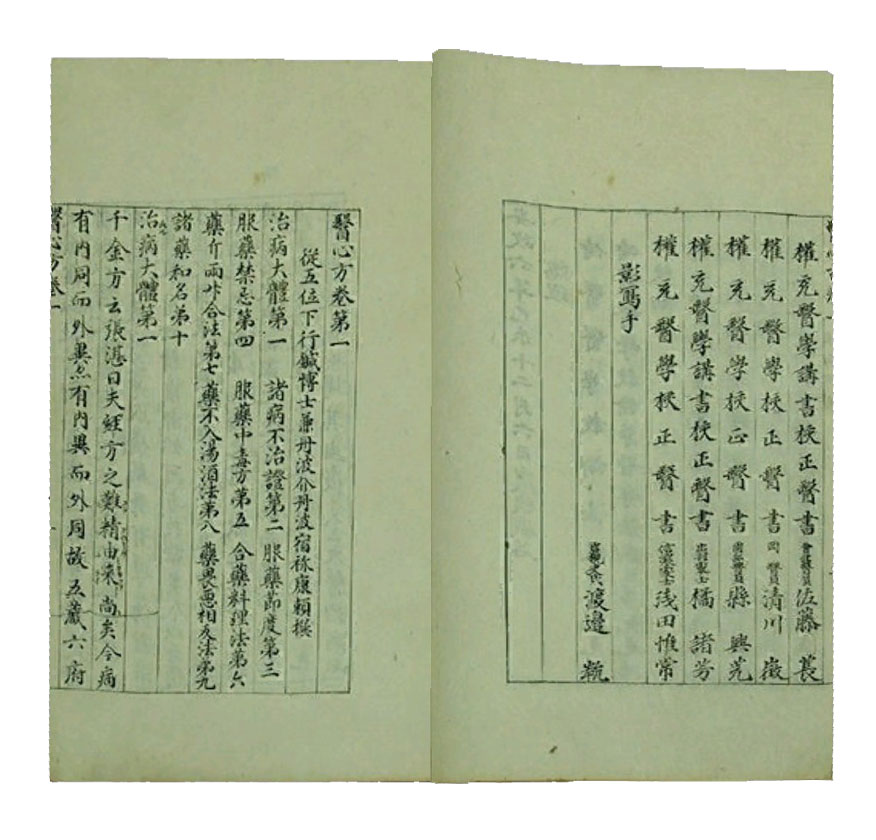 權充醫學講書挍正醫書 佐藤萇
權充醫學挍正醫書 清川
權充醫學挍正醫書 縣
權充醫學講書挍正醫書 橘諸芳
權充醫學挍正醫書 浅田惟常
影寫手
渡邊
醫心方卷第一
從五位下行鍼博士兼丹波介丹波宿祢康賴撰
治病大體第一 諸病不治證第二 服藥節度第三
服藥禁忌第四 服藥中毒方第五 合藥料理法第六
藥斤兩升合法第七 藥不入湯酒法第八 藥畏惡相反法第九
諸藥和名第十
治病大體第一
千金方云張湛曰夫經方之難精由來尚矣今病
有内同而外異亦有内異而外同故五藏六府
醫心方卷一